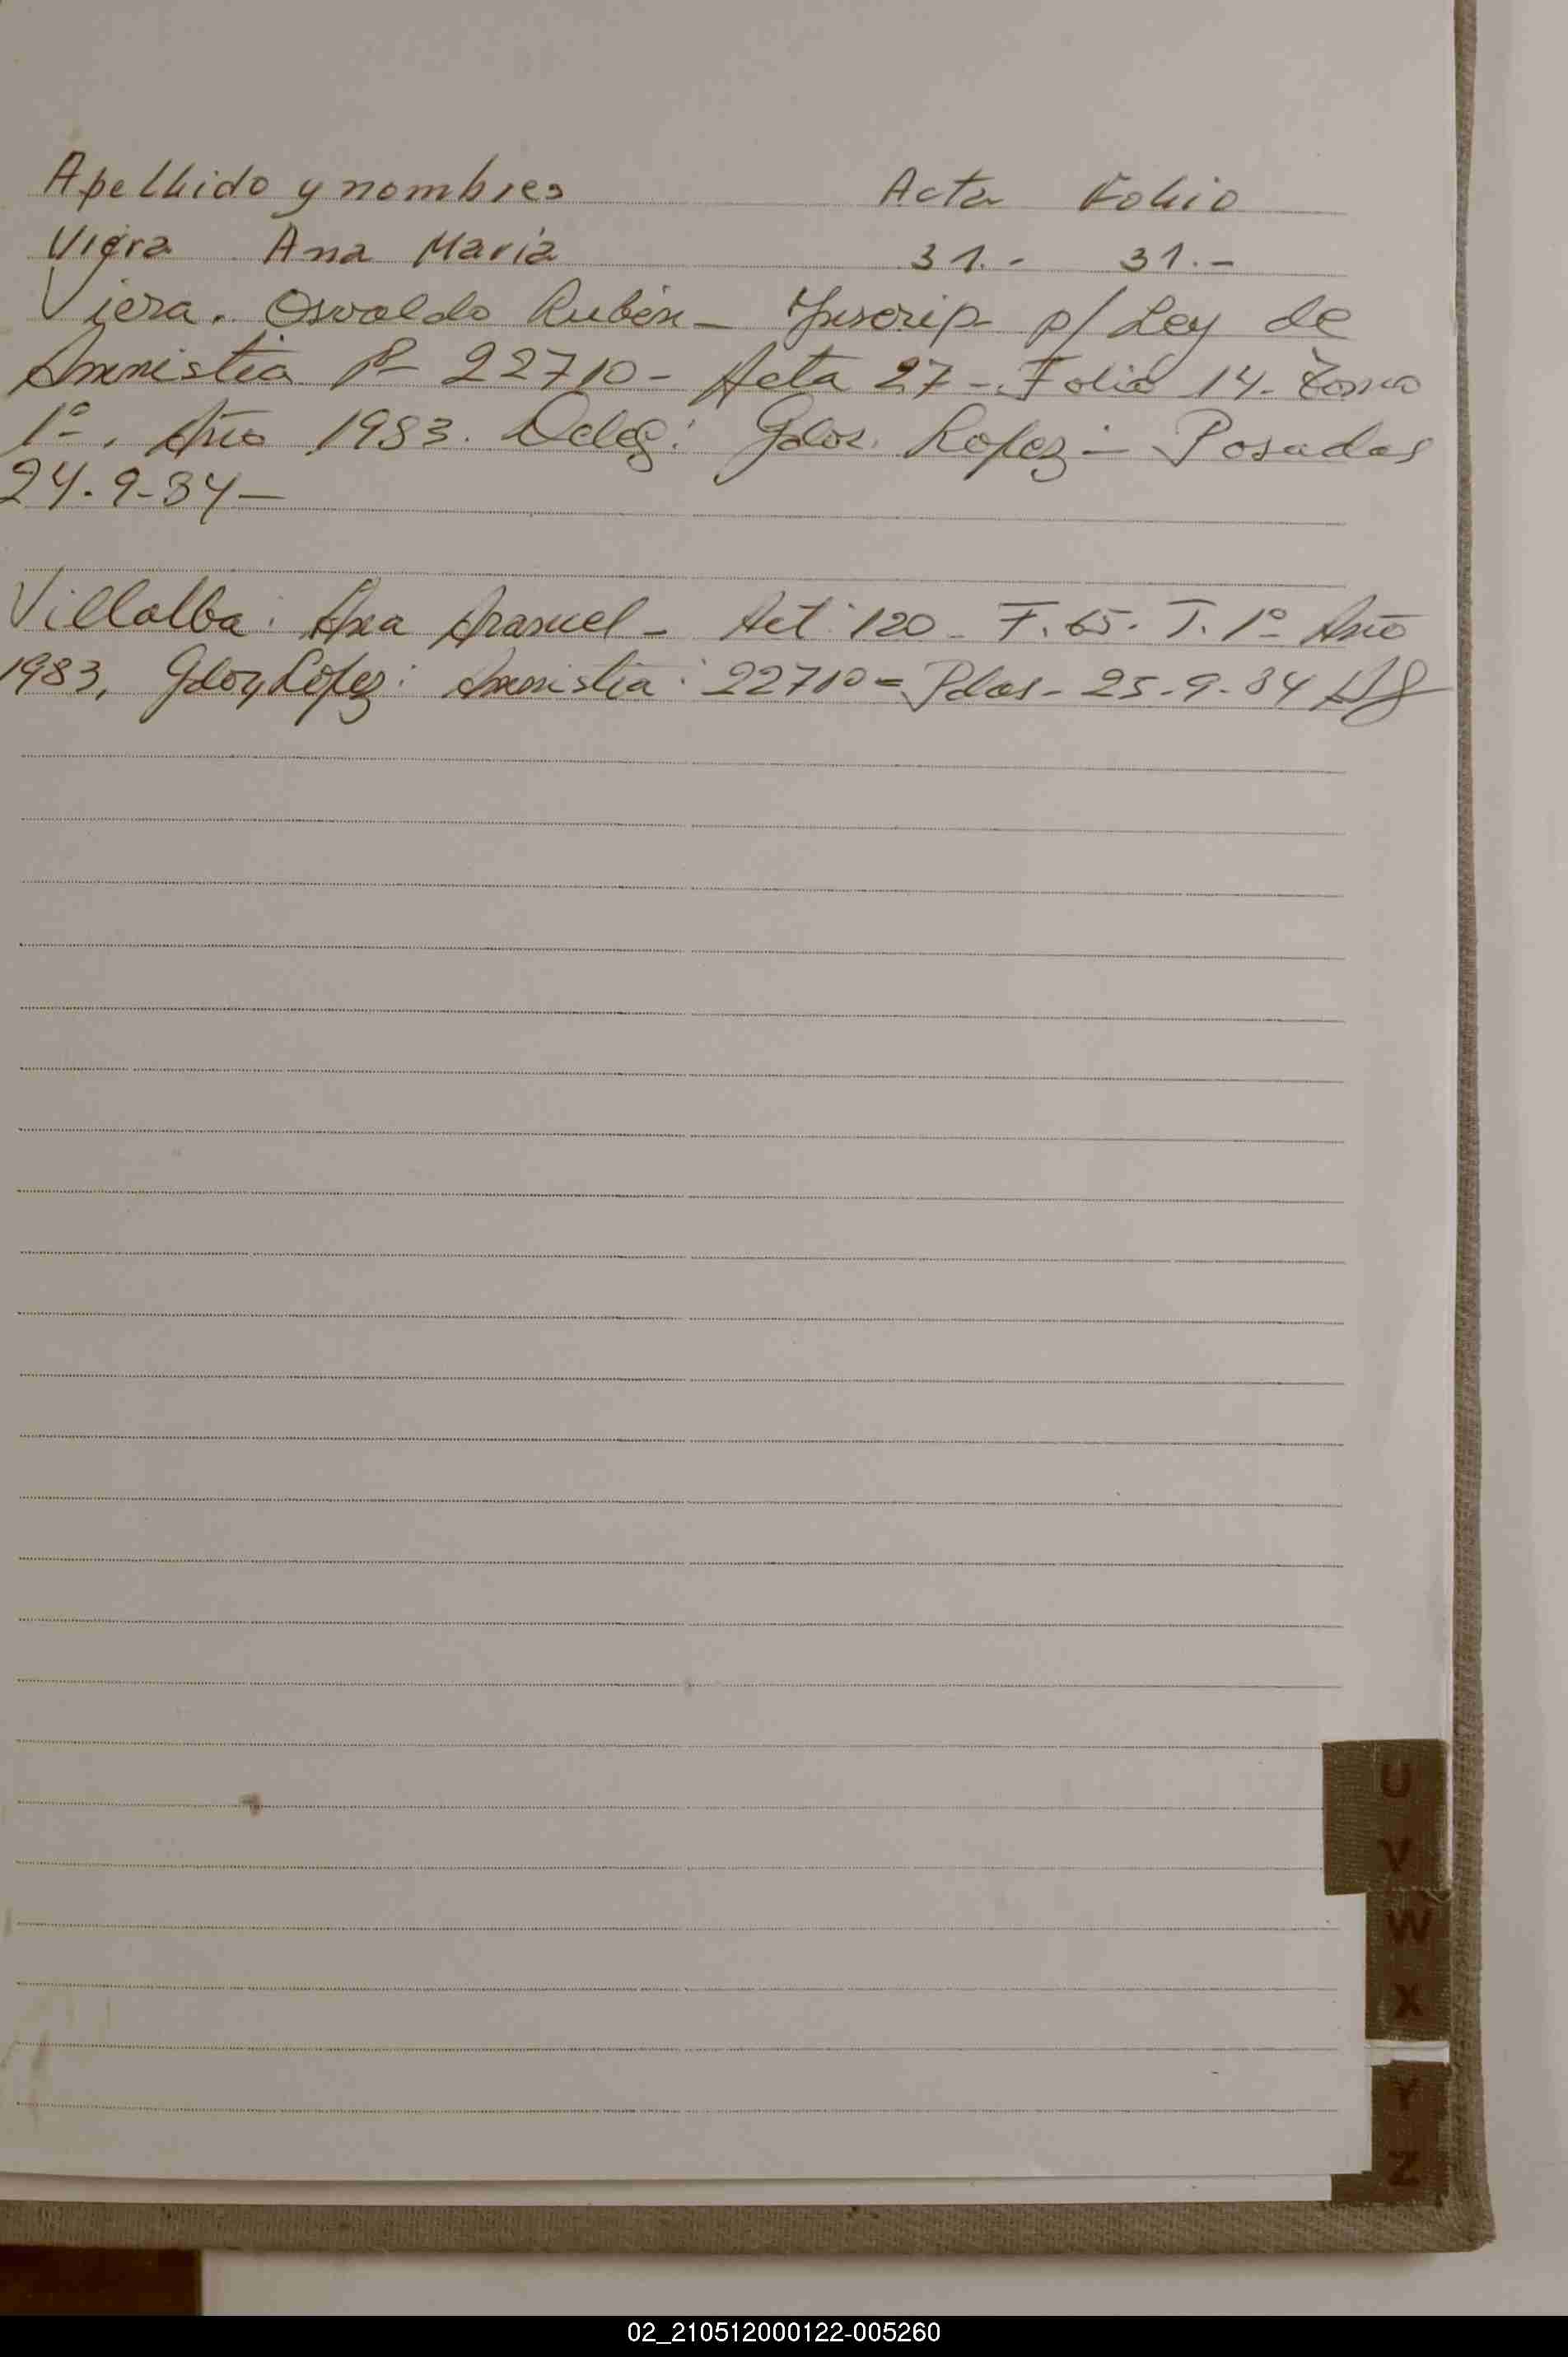 Apellido y nombres Acta Folio
Viera Ana Maria 31.- 31.-
Viera. Osvaldo Rubén - Inscrip p/ Ley de
Amnistia 22710 - Acta 27 - Folio 14. Tomo
1º. Año 1983. Deleg: Gdor. Lopez - Posadas
24.9-84 -
Villalba: Ana - Act: 120 - F. 65. T. 1º Año
1983, Lopez: Amnistia: 22710 = Pdas - 25-9-84
U
V
W
X
Y
Z
02_210512000122-005260